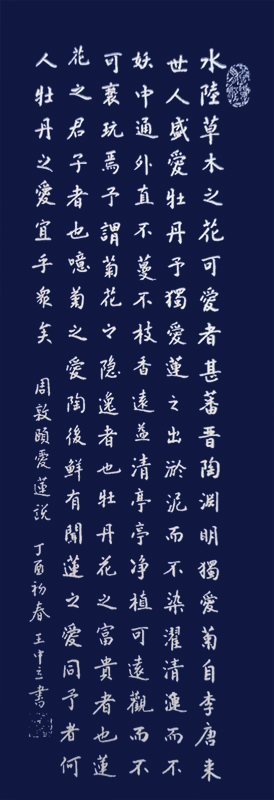 水陸草木之花可愛者甚蕃晉陶淵明獨愛菊自李唐来
世人盛愛牡丹予獨愛蓮之出淤泥而不染濯清漣而不
妖中通外直不蔓不枝香遠益清亭亭净植可遠觀而不
可褻玩焉予謂菊花之隐逸者也牡丹花之富貴者也蓮
花之君子者也噫菊之愛陶後鮮有聞蓮之愛同予者何
人牡丹之愛宜乎衆矣 周敦頤愛蓮說 丁酉初春王中立書